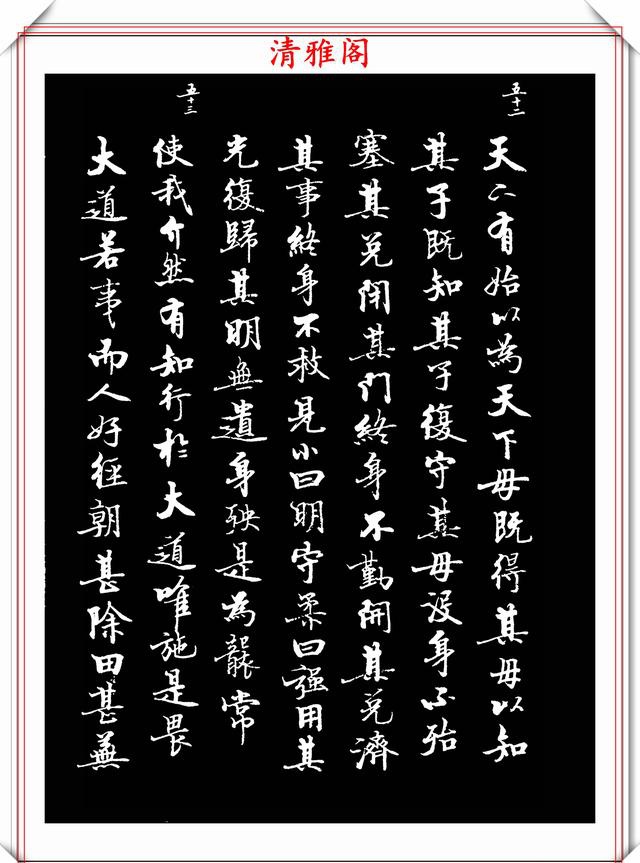 清雅阁
五十二
天下有始以為天下母既得其母以知
其子既知其子復守其母没身不殆
塞其兑閉其門終身不勤開其兑濟
其事終身不救見小曰明守柔曰强用其
光復歸其明無遺身殃是為襲常
五十三
使我介然有知行於大道唯施是畏
大道若夷而人好徑朝甚除田甚蕪